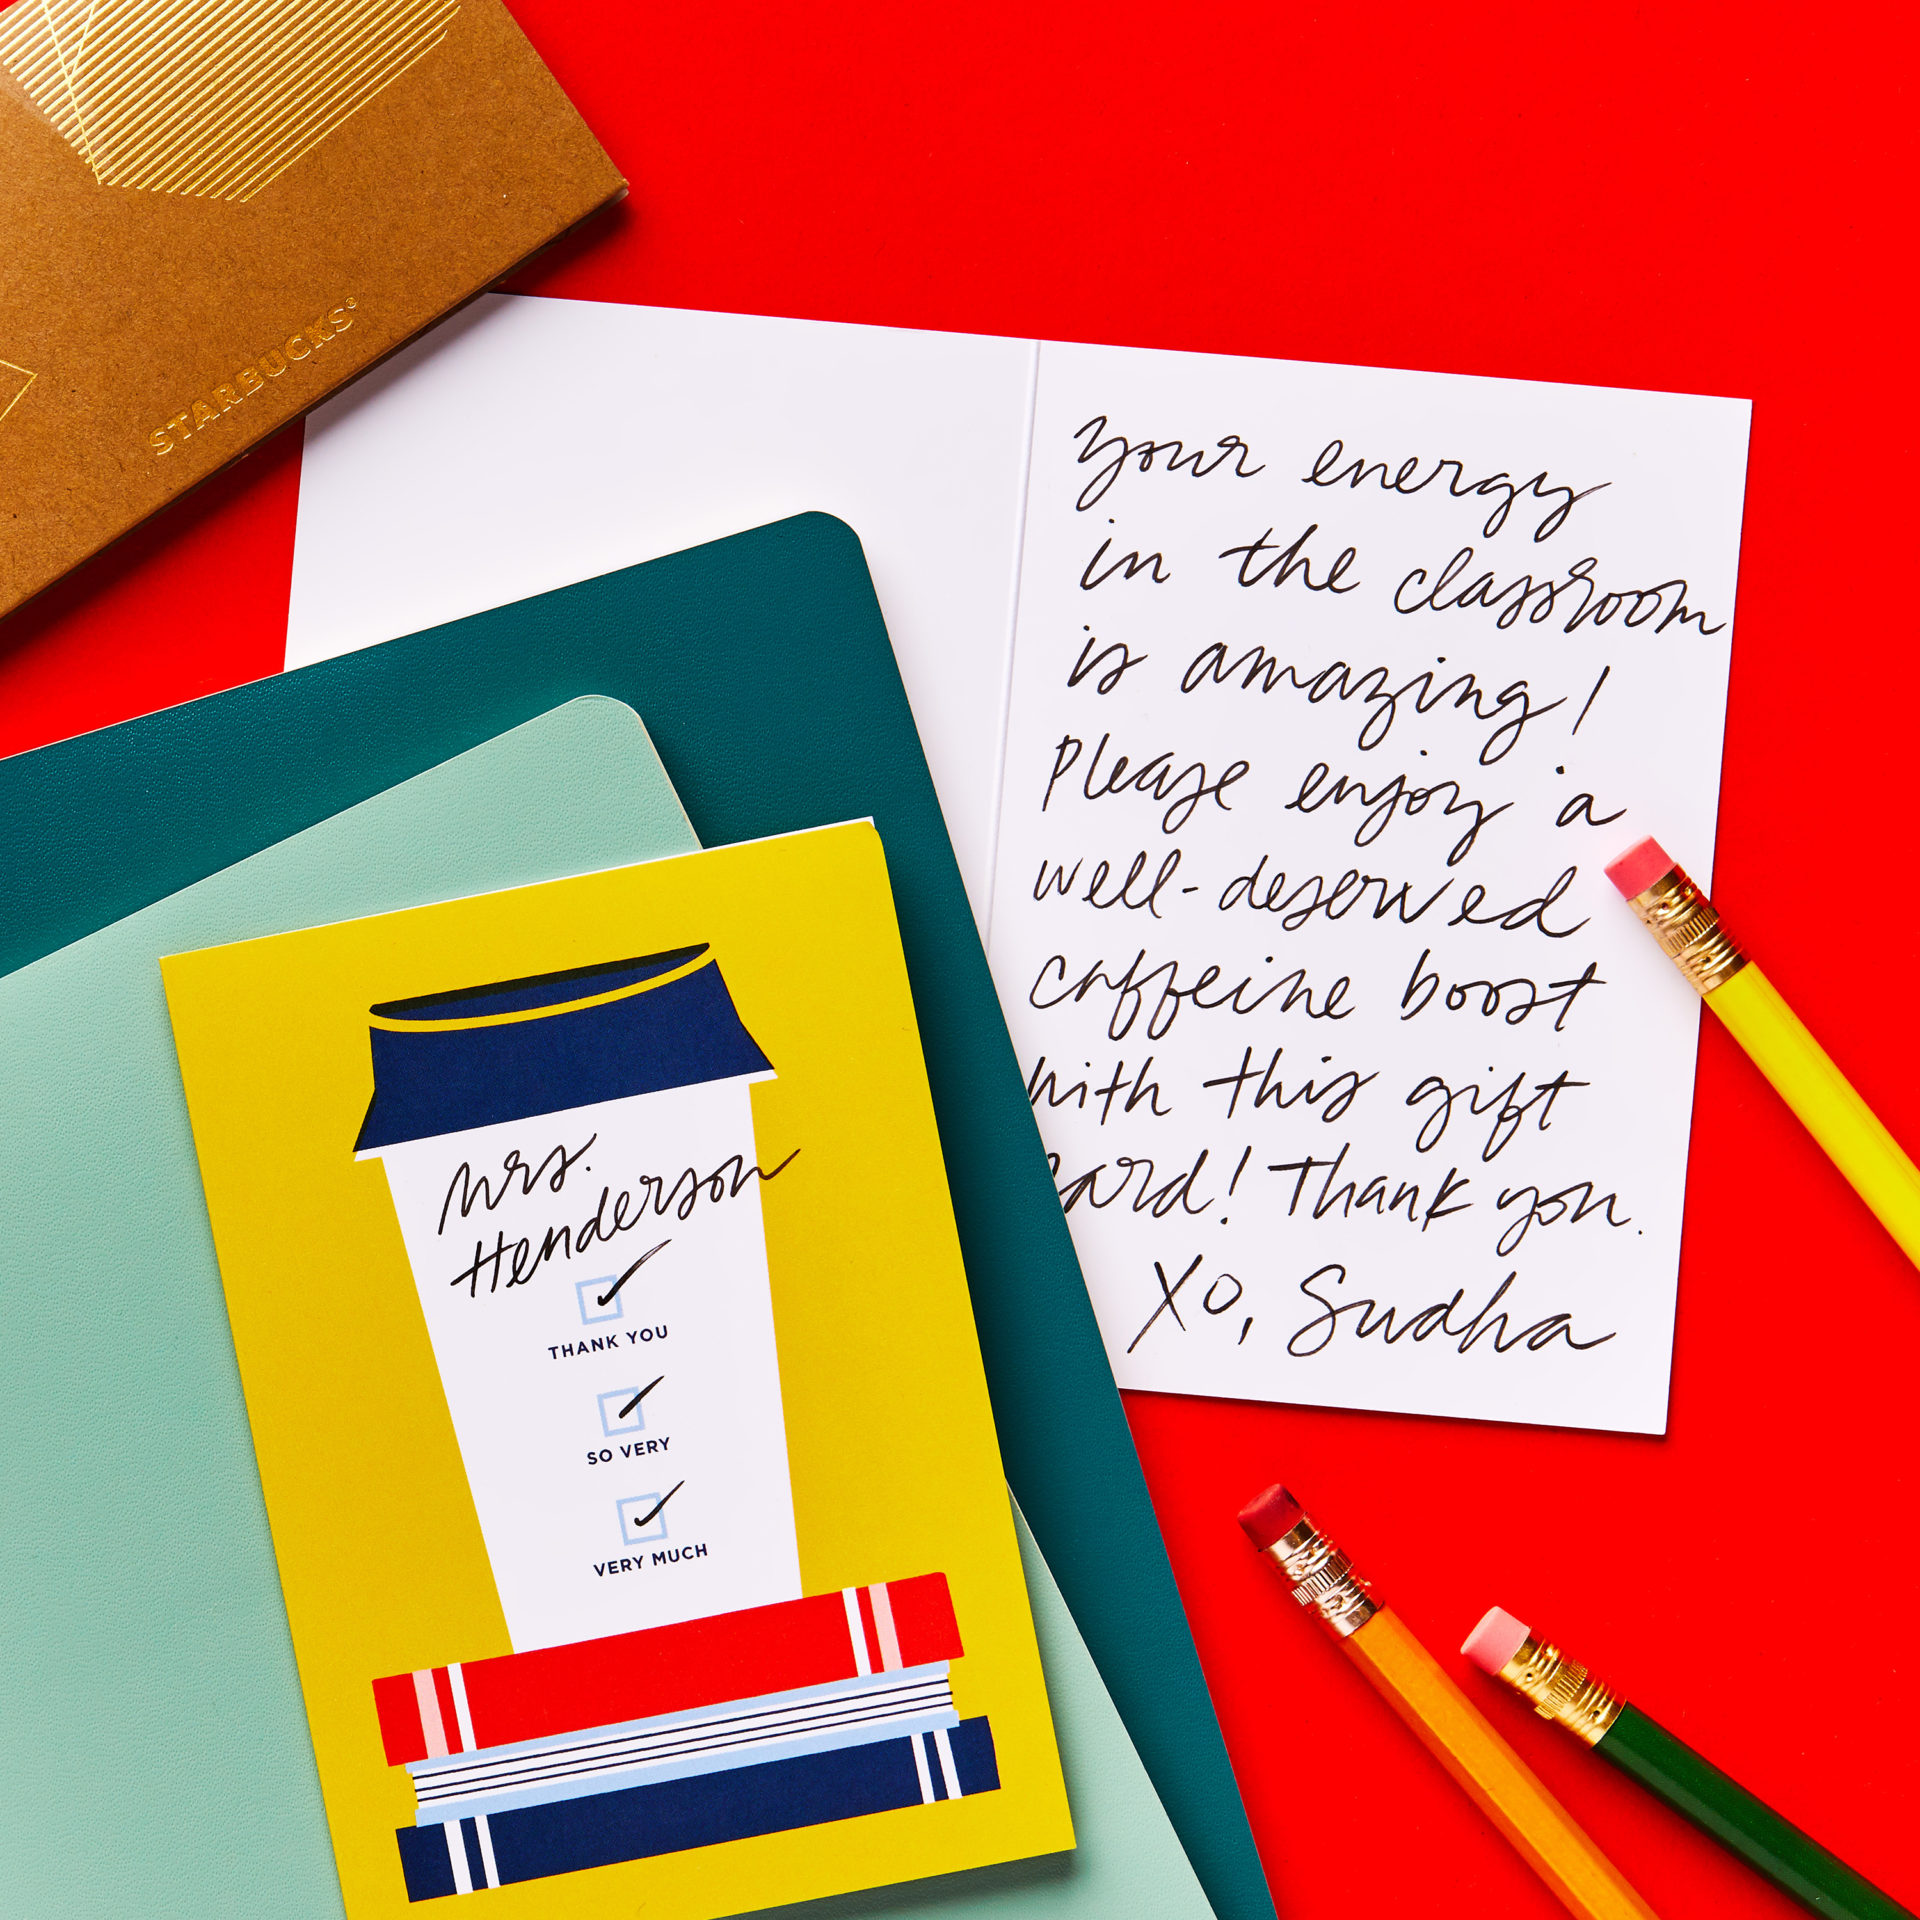 STARBUCKS®
your energy
in the classroom
is amazing!
Please enjoy a
well-deserved
caffeine boost
with this gift
card! Thank you.
XO, Sudha
Mrs.
Henderson
THANK YOU
SO VERY
VERY MUCH